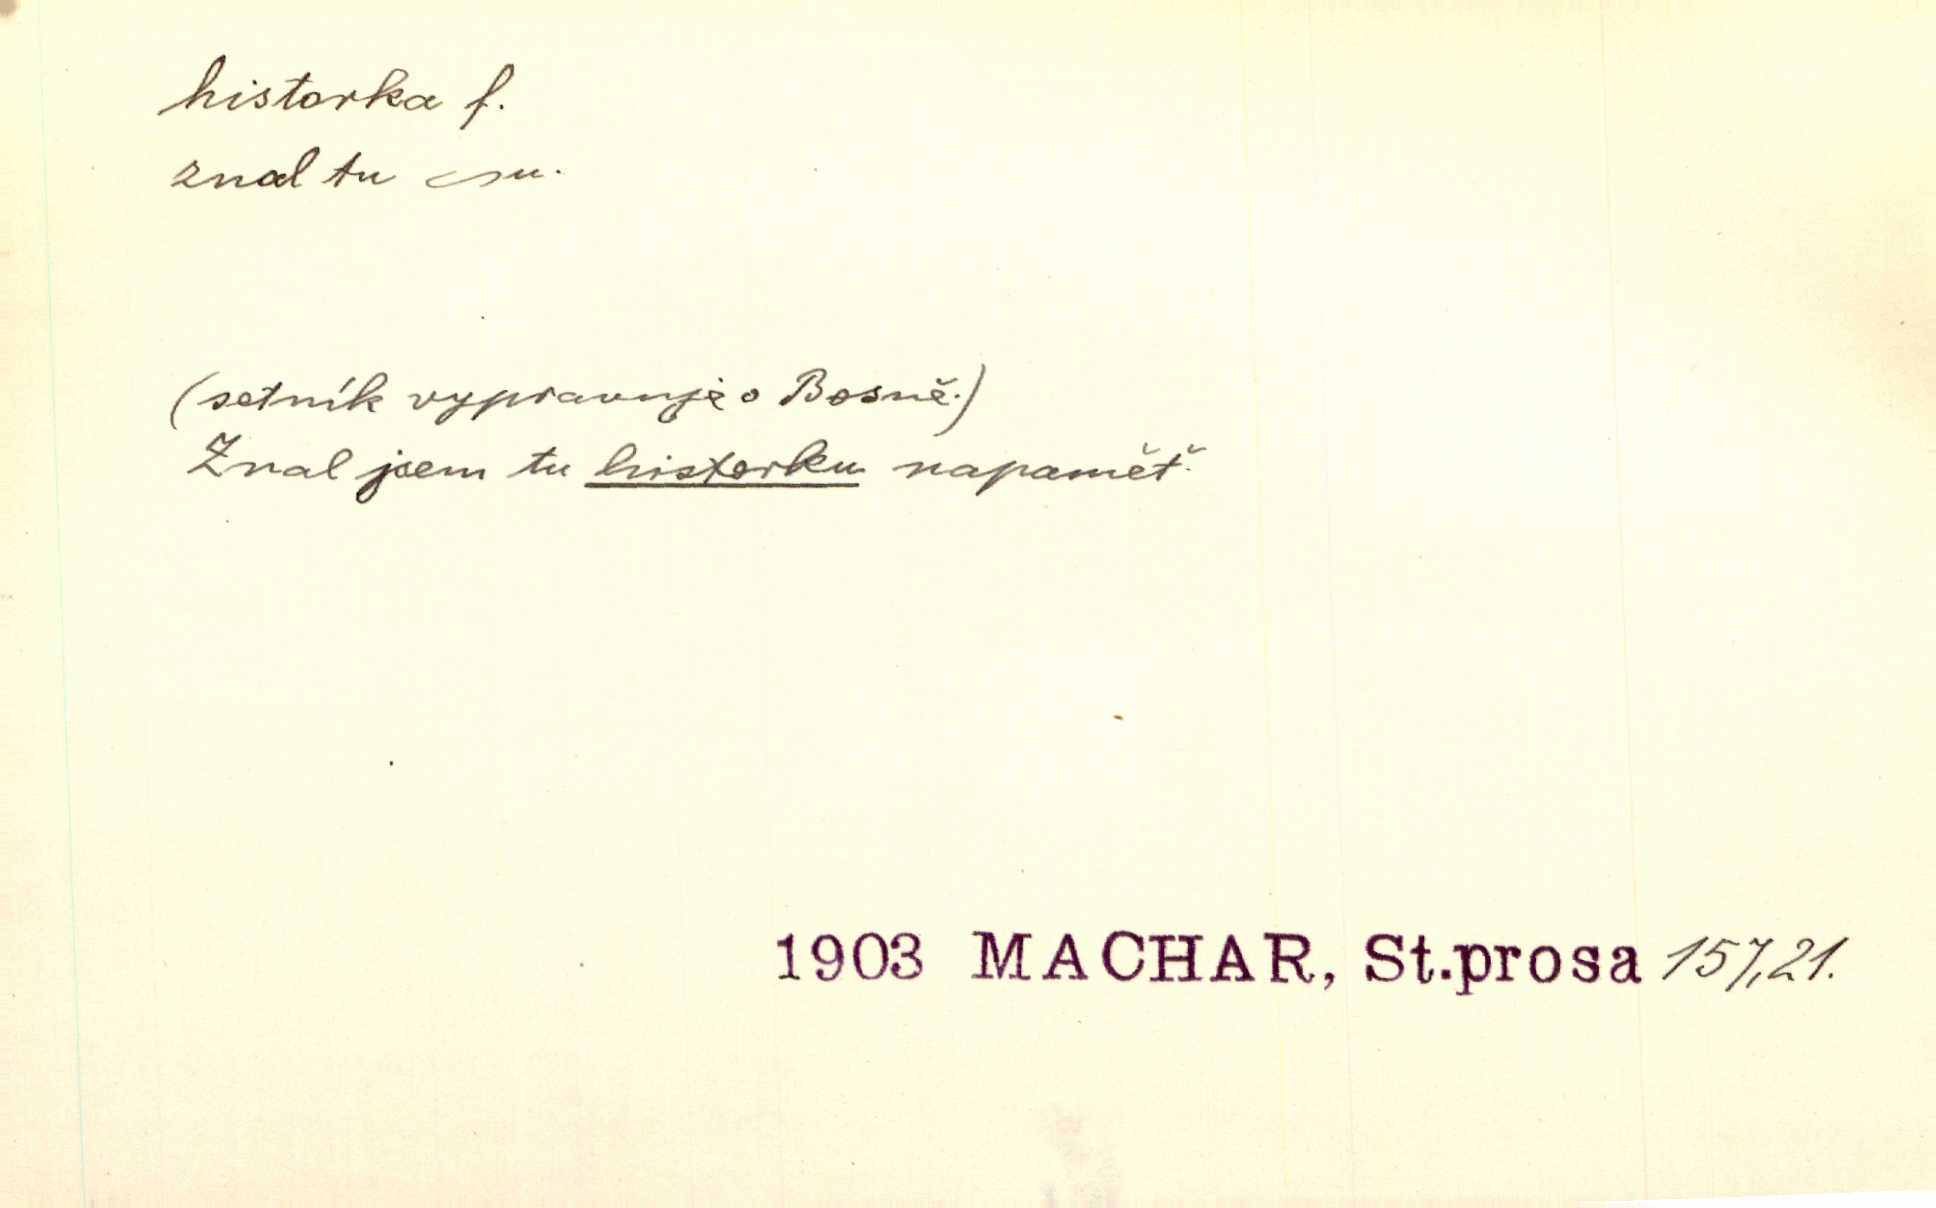 historka f.
znal tu ~u.
(setník vypravuje o Bosně.)
Znal jsem tu historku napaměť.
1903 MACHAR, St.prosa 157,21.